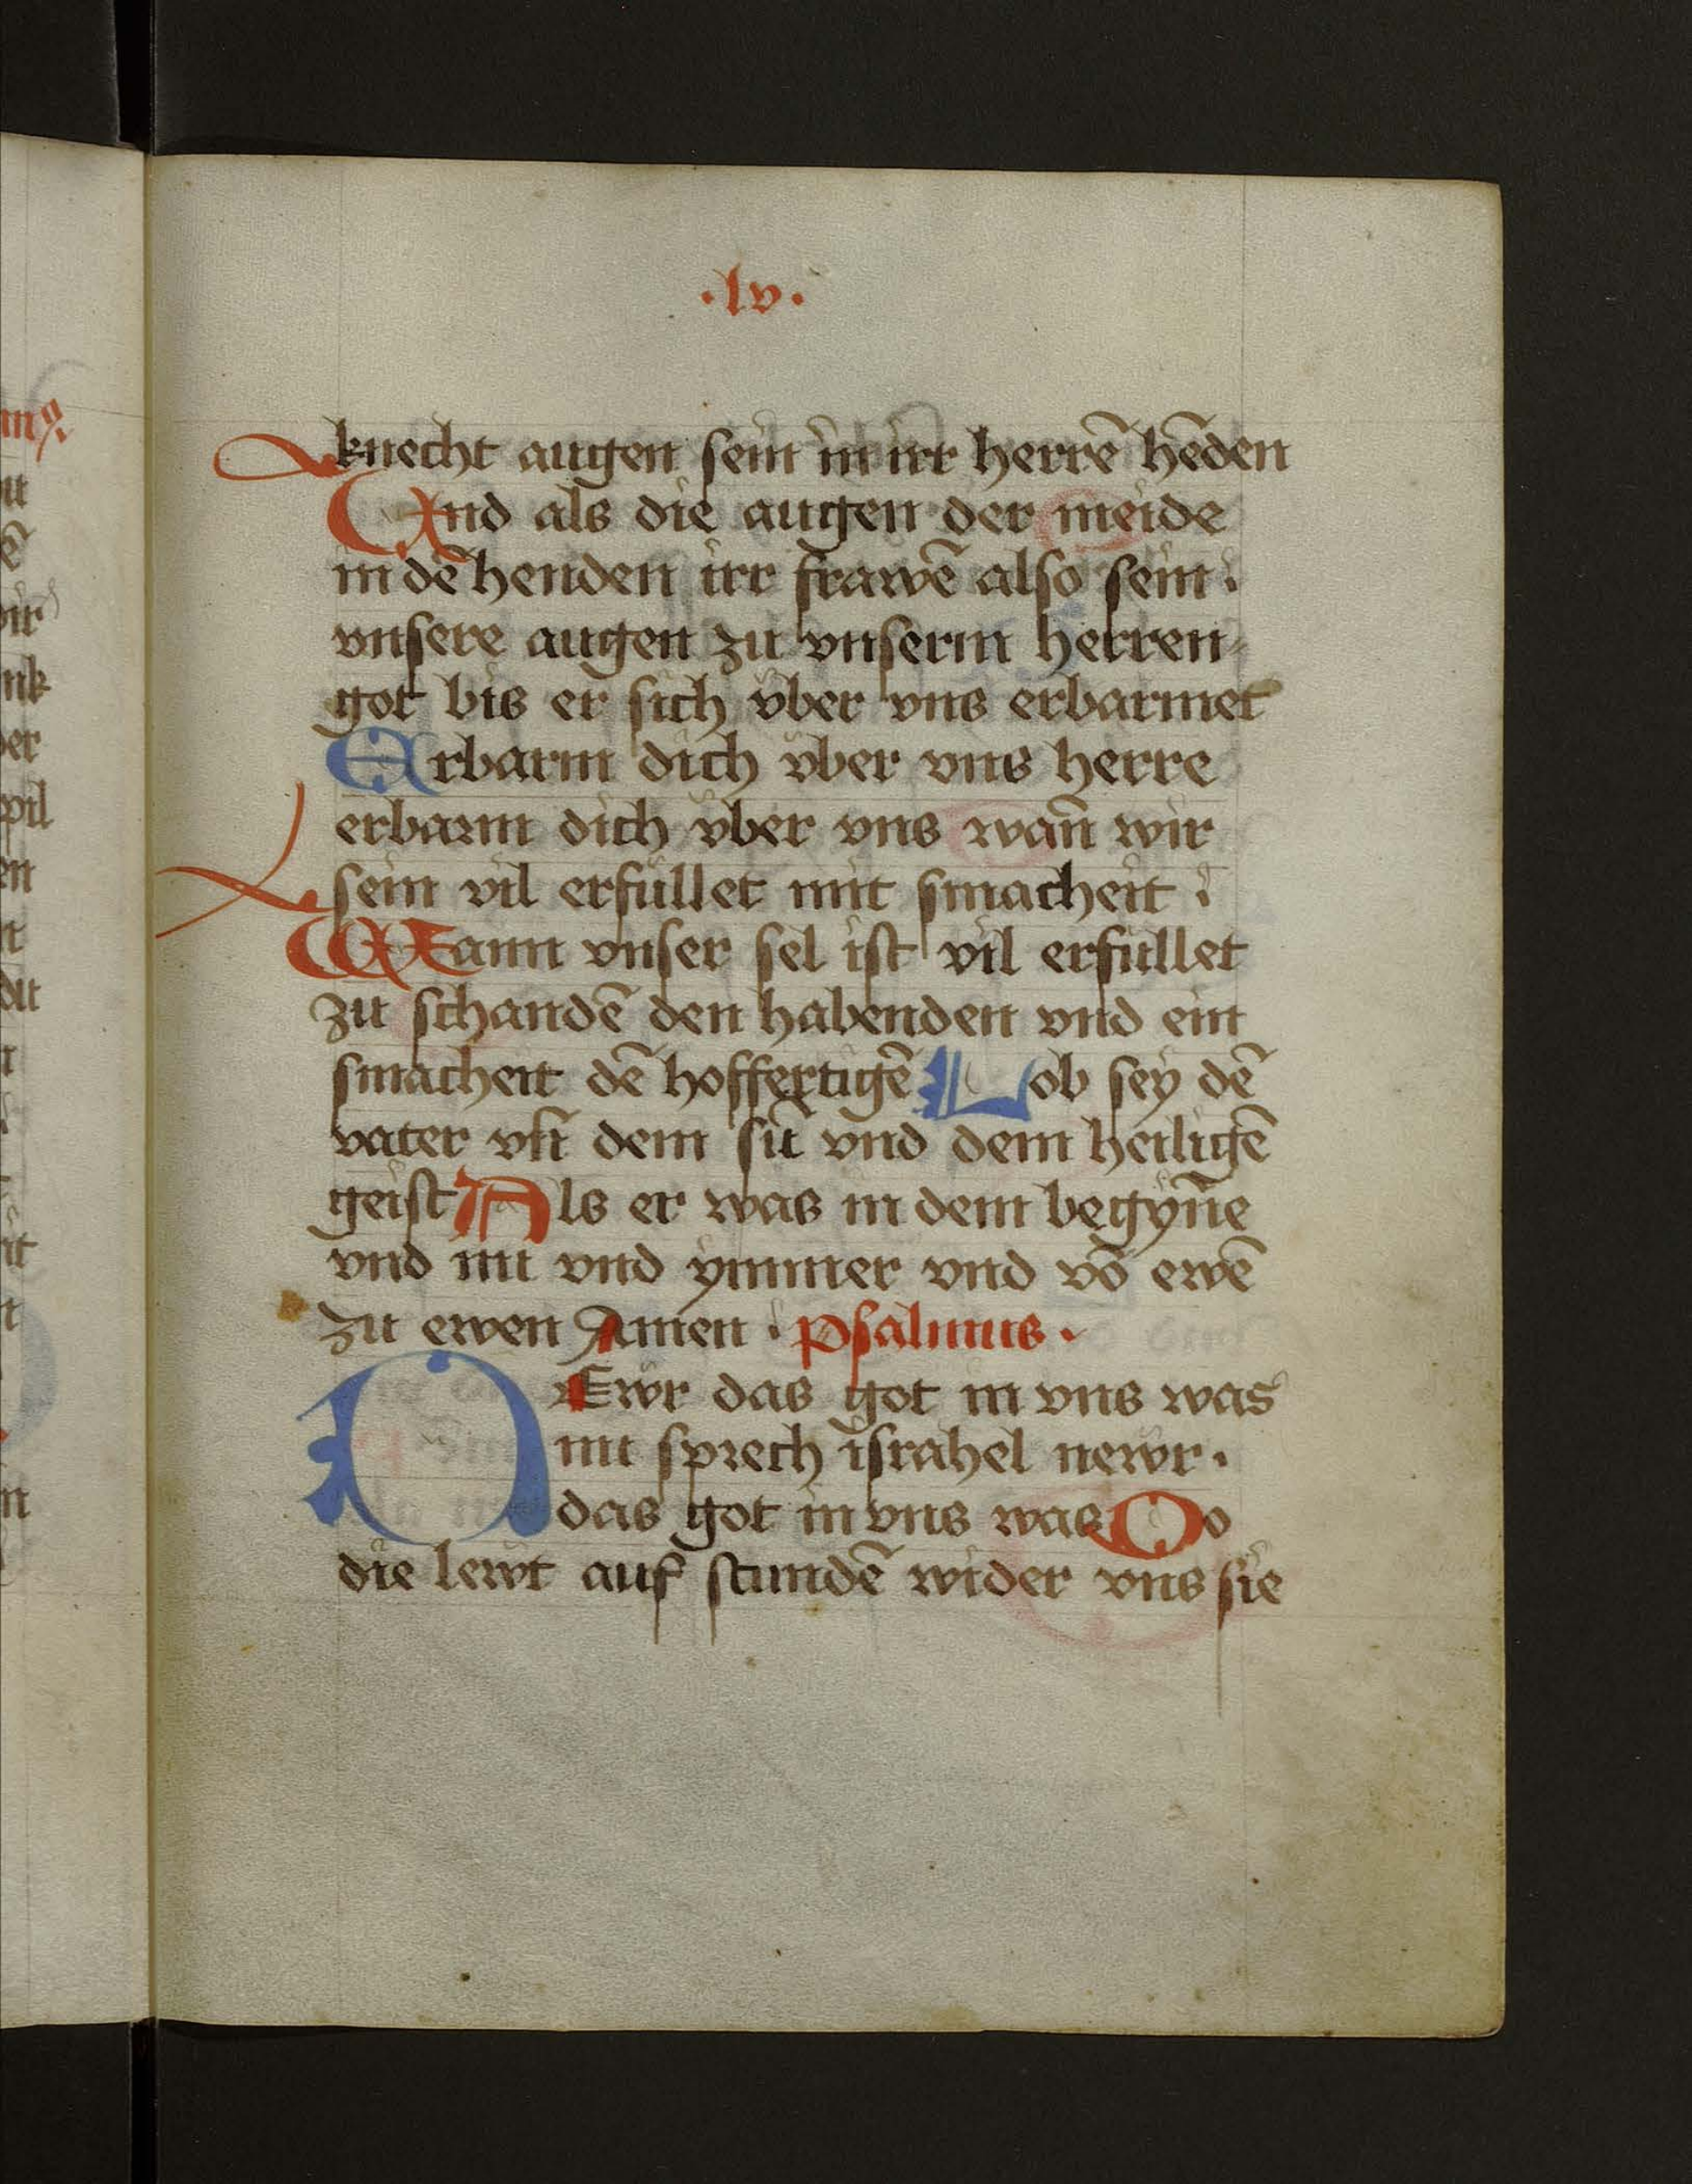 ·lv·
knecht augen sein in irr herrē hēden
Vnd als die augen der meide
in dē henden irr frawē also sein.
vnsere augen zu vnserm herren
got bis er sich vber vns erbarmet
Erbarm dich vber vns herre
erbarm dich vber vns wañ wir
sein vil erfüllet mit smacheit.
Wann vnser sel ist vil erfullet
zu schandē den habenden vnd ein
smacheit dē hoffertigē Lob sey dē
vater vñ dem sũ vnd dem heiligē
geist Als er was in dem begyñe
vnd nu vnd ymmer vnd vō ewē
zu ewen Amen. psalmus.
Ewr das got in vns was
nu sprech israhel newr.
das got in vns was Do
die lewt auf stundē wider vns sie